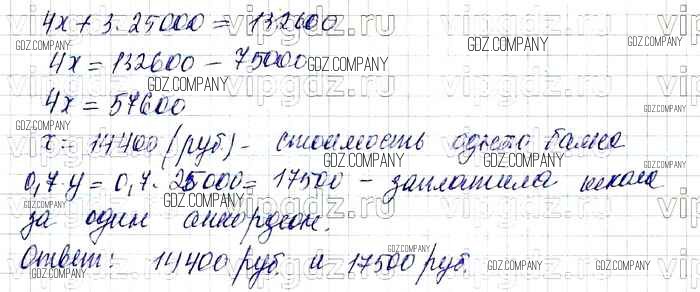 4x + 3·25000 = 132600
4x = 132600 - 75000
4x = 57600
x = 14400 (руб.) - стоимость одного баяна
0,7 y = 0,7 · 25000 = 17500 - заплатила школа
за один аккордеон.
Ответ: 14400 руб. и 17500 руб.
vipgdz.ru
GDZ.COMPANY